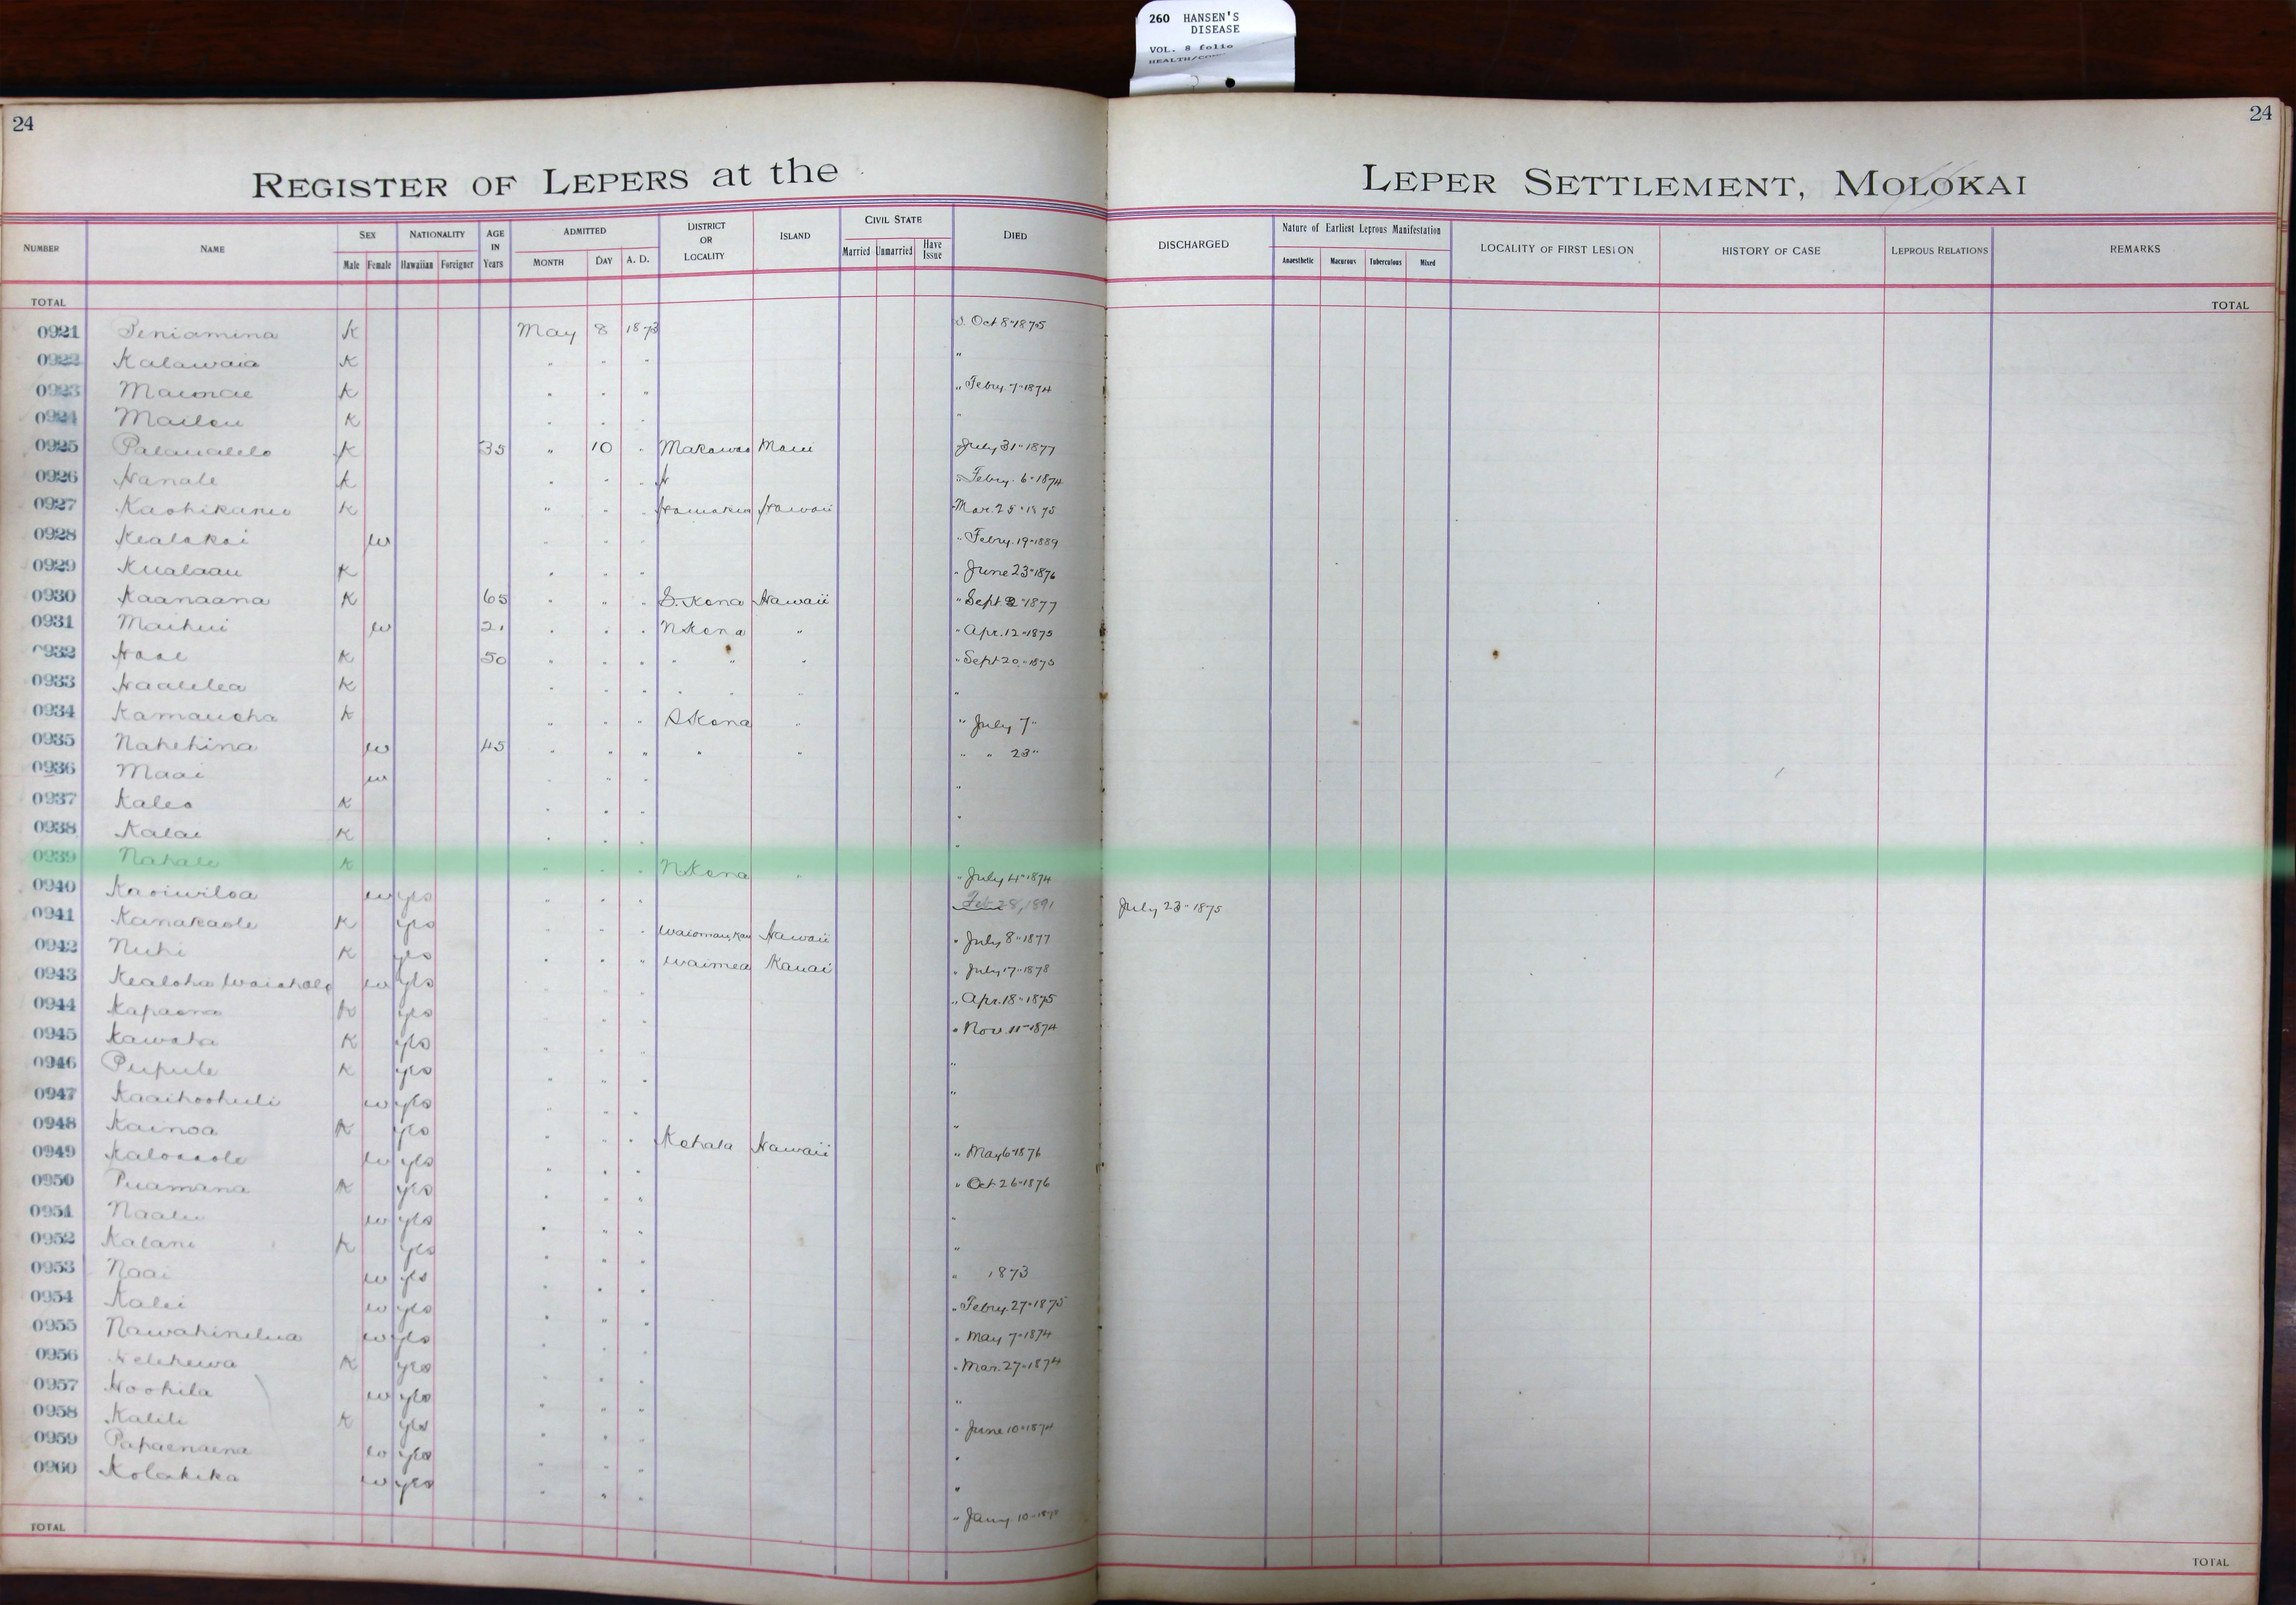 260 HANSEN'S
DISEASE
VOL. 8 folio
24
24
REGISTER OF LEPERS at the LEPER SETTLEMENT, MOLOKAI
NUMBER NAME SEX NATIONALITY AGE IN Years ADMITTED DISTRICT OR LOCALITY ISLAND CIVIL STATE DIED DISCHARGED Nature of Earliest Leprous Manifestation LOCALITY OF FIRST LESION HISTORY OF CASE LEPROUS RELATIONS REMARKS
Male Female Hawaiian Foreigner MONTH DAY A. D. Married Unmarried Have Issue Anaesthetic Macurous Tuberculous Mixed
TOTAL TOTAL
0921 Peniamina K May 8 1873 Oct 8 " 1875
0922 Kalawaia K " " " "
0923 Maunae K " " " " Febry. 7 " 1874
0924 Mailou K " " " "
0925 Palaualelo K 35 " 10 " Makawao Maui July 31 " 1877
0926 Hanale K " " " " Febry. 6 " 1874
0927 K " " " Hamakua Hawaii Mar. 25 " 1875
0928 Kealakai w " " " " Febry. 19 " 1889
0929 Kualaau K " " " " June 23 " 1876
0930 Kaanaana K 65 " " " S. Kona Hawaii " Sept 2 " 1877
0931 Maihui w 21 " " " N Kona " " Apr. 12 " 1875
0932 K 50 " " " " " " " Sept 20 " 1875
0933 Haalelea K " " " " " " "
0934 Kamauoha K " " " S Kona " " July 7 "
0935 Nahehina w 45 " " " " " " " 23 "
0936 Maai w " " " "
0937 Kaleo K " " " "
0938 Kalai K " " " "
0939 Nahale K " " " N Kona " " July 4 " 1874
0940 Kaoiwiloa w yes " " " Feb 28, 1891 July 23 " 1875
0941 Kanakaole K yes " " " Hawaii " July 8 " 1877
0942 Nuhi K yes " " " Waimea Kauai " July 17 " 1878
0943 Kealoha w yes " " " " Apr. 18 " 1875
0944 Kapaona K yes " " " " Nov. 11 " 1874
0945 Kawaha K yes " " " "
0946 Pupule K yes " " " "
0947 Kaaihoohuli w yes " " " "
0948 Kainoa K yes " " " Kohala Hawaii " May 6 " 1876
0949 w yes " " " " Oct 26 " 1876
0950 Puamana K yes " " " "
0951 Naalu w yes " " " "
0952 Kalani K yes " " " " 1873
0953 Naai w yes " " " " Febry. 27 " 1875
0954 Kalei w yes " " " " May 7 " 1874
0955 Nawahinelua w yes " " " " Mar. 27 " 1874
0956 K yes " " " "
0957 Hoohila w yes " " " " June 10 " 1874
0958 Kalili K yes " " " "
0959 Papaenaena w yes " " " "
0960 Kolakika w yes " " " " Jany. 10 "
TOTAL TOTAL